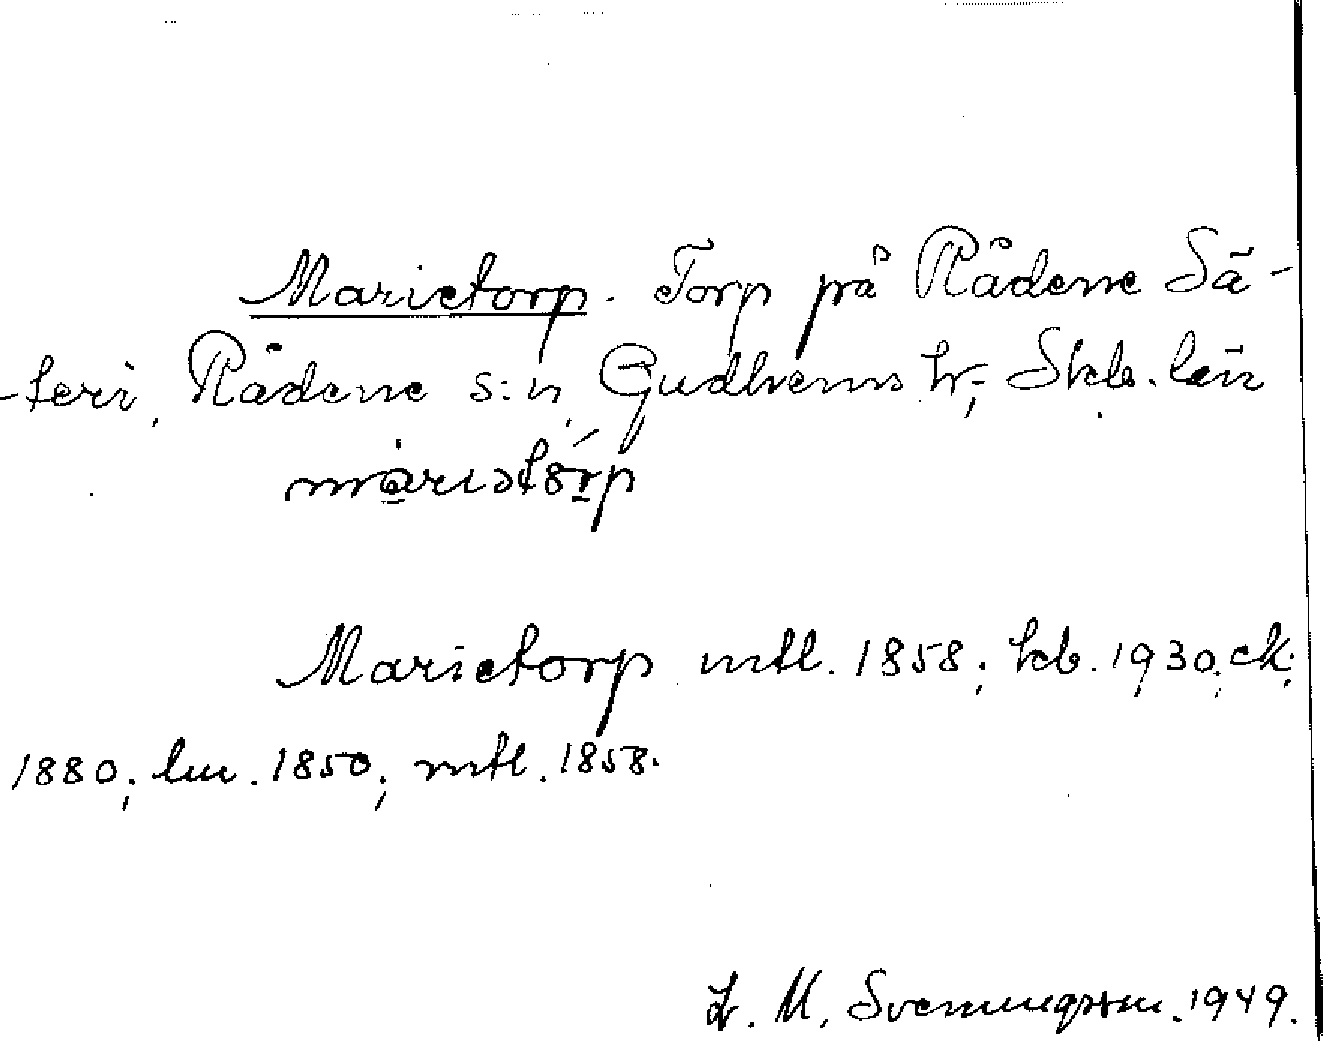 Marietorp. Torp på Rådene Sä-
-teri, Rådene s:n, Gudhems hr, Skb. län
Marietorp mtl. 1858; kb. 1930; ek;
1880; lm. 1850; mtl. 1858.
M. Svenningsson. 1949.